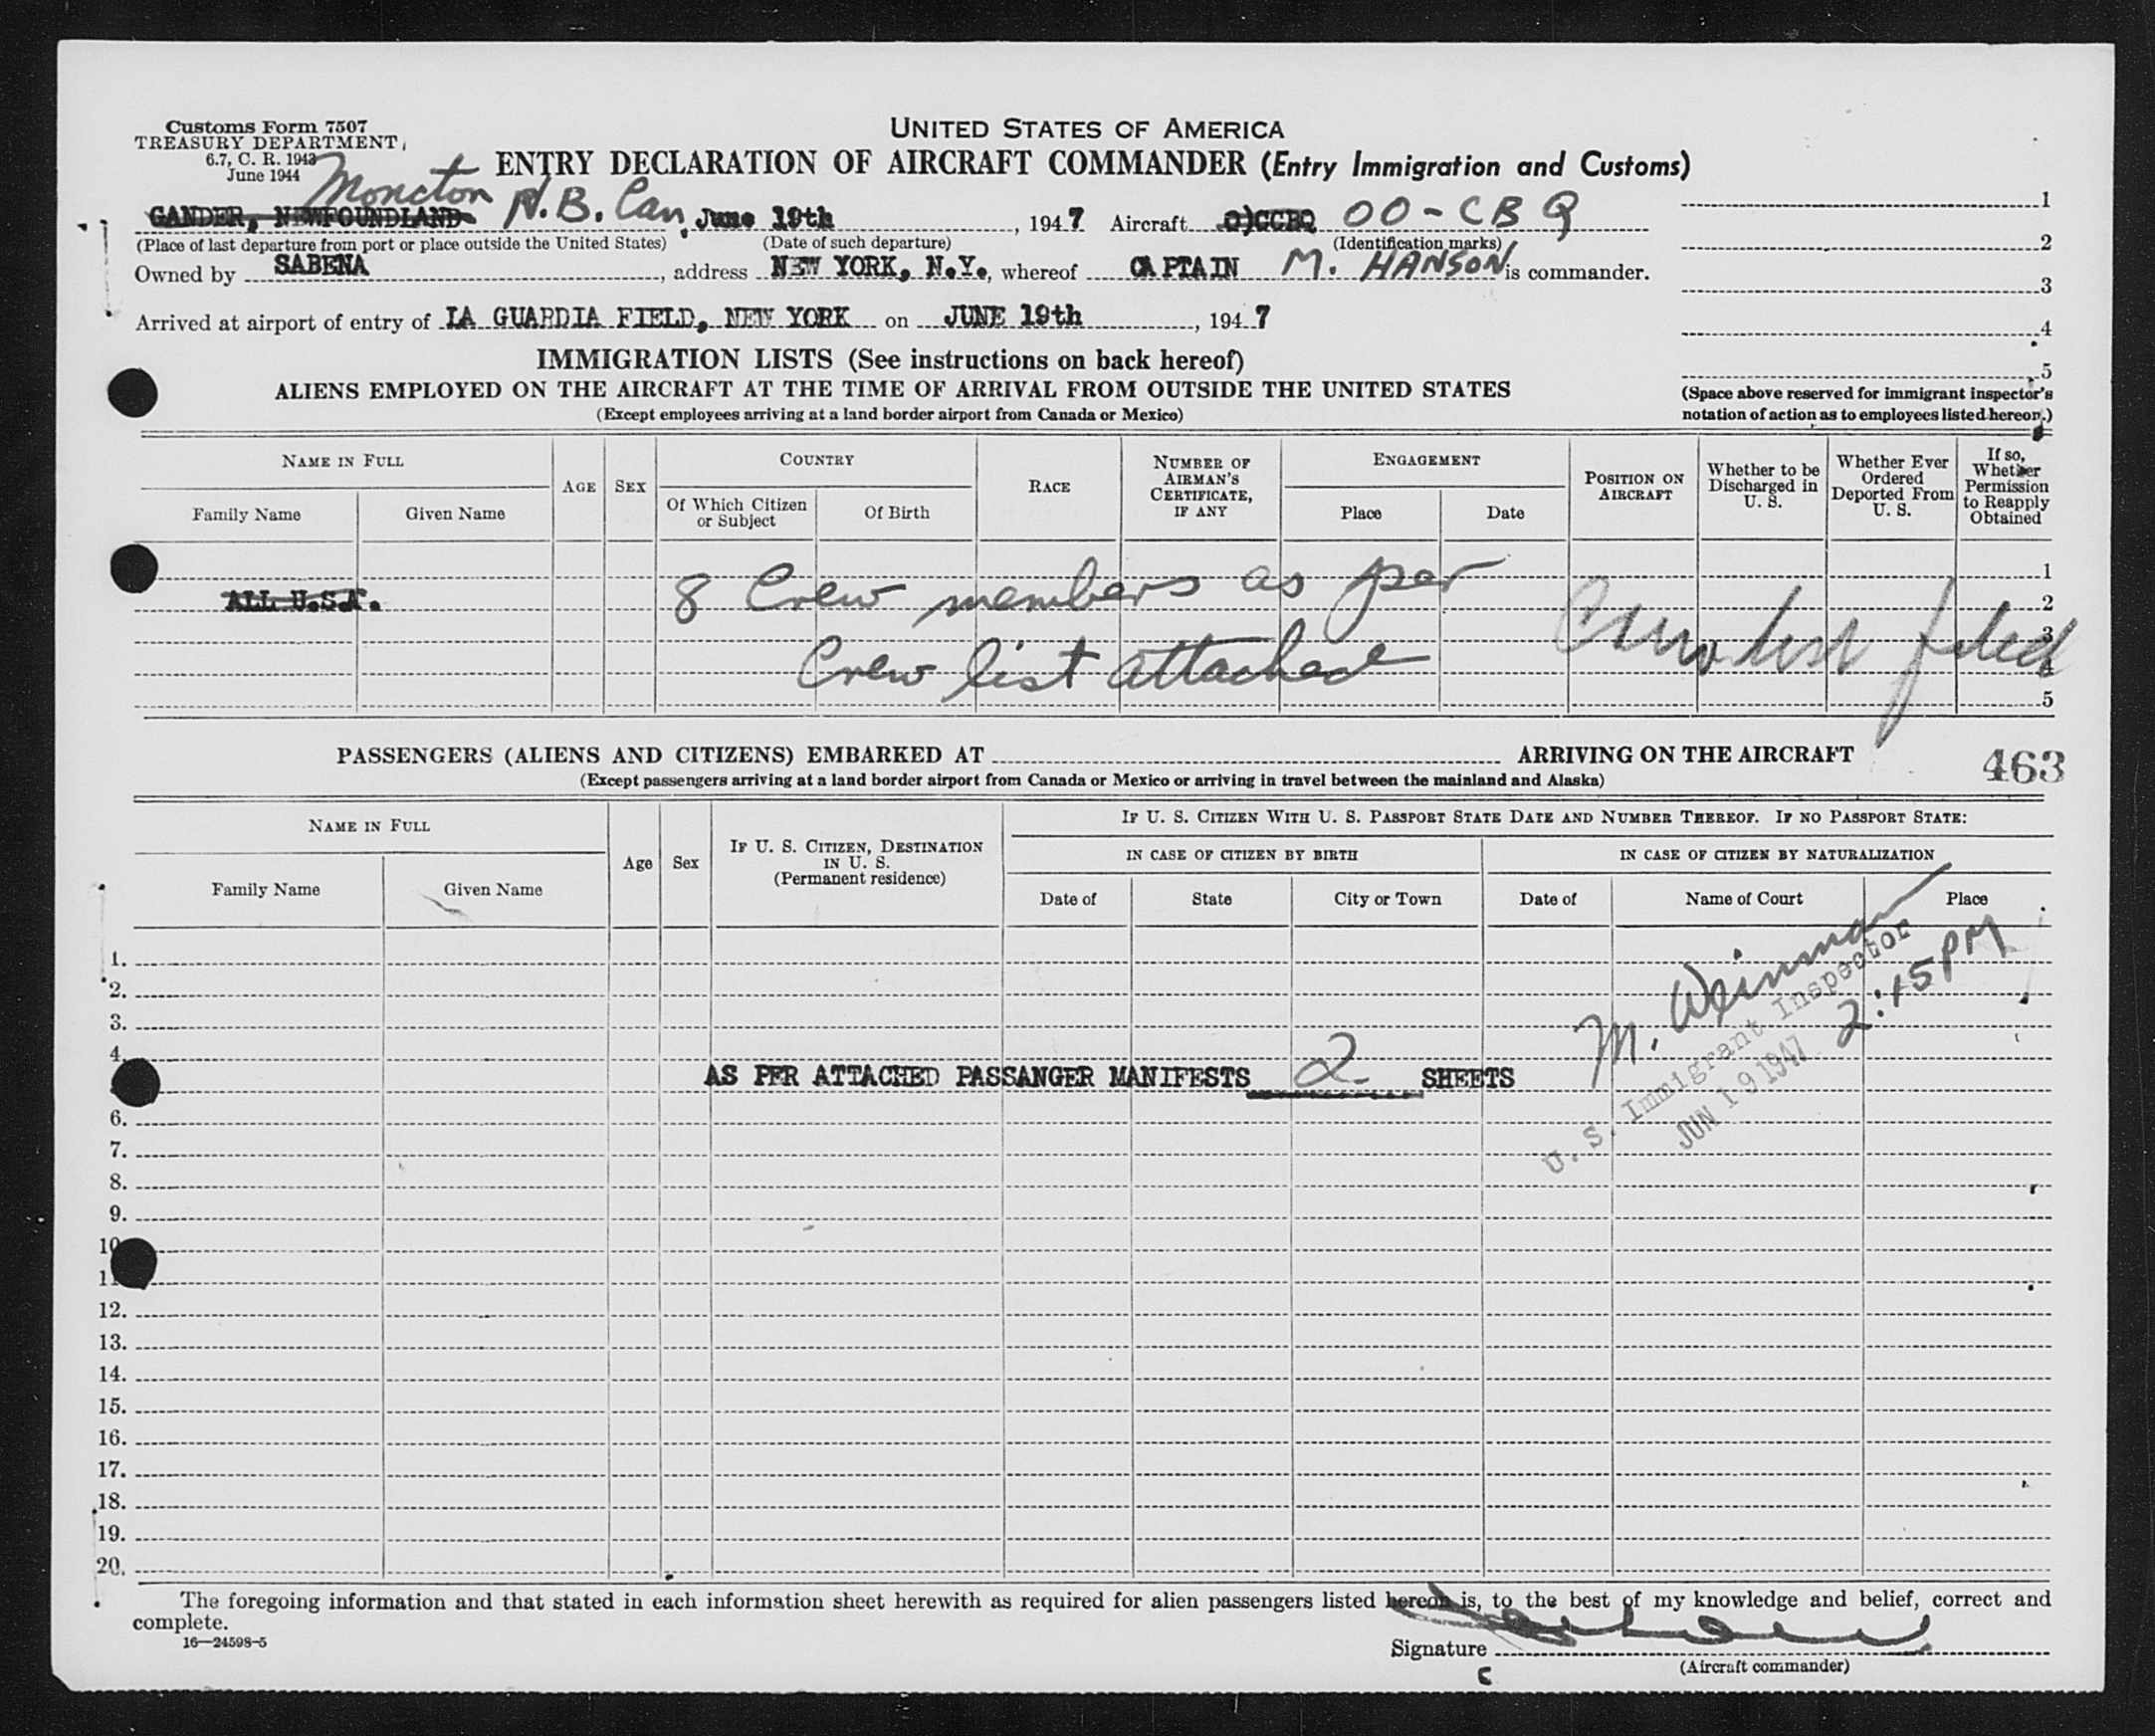 Customs Form 7507
TREASURY DEPARTMENT
6.7, C. R. 1943
June 1944
UNITED STATES OF AMERICA
ENTRY DECLARATION OF AIRCRAFT COMMANDER (Entry Immigration and Customs)
Moncton N.B. Can.
GANDER, NEWFOUNDLAND June 19th, 1947 Aircraft OOCCBQ OO-CBQ
(Place of last departure from port or place outside the United States) (Date of such departure) (Identification marks)
Owned by SABENA, address NEW YORK, N.Y., whereof CAPTAIN M. HANSON is commander.
Arrived at airport of entry of LA GUARDIA FIELD, NEW YORK on JUNE 19th, 1947
1
2
3
4
5
(Space above reserved for immigrant inspector's
notation of action as to employees listed hereon.)
IMMIGRATION LISTS (See instructions on back hereof)
ALIENS EMPLOYED ON THE AIRCRAFT AT THE TIME OF ARRIVAL FROM OUTSIDE THE UNITED STATES
(Except employees arriving at a land border airport from Canada or Mexico)
NAME IN FULL
Family Name Given Name
AGE
SEX
COUNTRY
Of Which Citizen or Subject
Of Birth
RACE
NUMBER OF AIRMAN'S CERTIFICATE, IF ANY
ENGAGEMENT
Place Date
POSITION ON AIRCRAFT
Whether to be Discharged in U. S.
Whether Ever Ordered Deported From U. S.
If so, Whether Permission to Reapply Obtained
1
ALL U.S.A. 8 Crew members as per 2
3
Crew list attached Crew list filed 4
5
PASSENGERS (ALIENS AND CITIZENS) EMBARKED AT ARRIVING ON THE AIRCRAFT
(Except passengers arriving at a land border airport from Canada or Mexico or arriving in travel between the mainland and Alaska)
463
NAME IN FULL
Family Name Given Name
Age
Sex
IF U. S. CITIZEN, DESTINATION IN U. S.
(Permanent residence)
IF U. S. CITIZEN WITH U. S. PASSPORT STATE DATE AND NUMBER THEREOF. IF NO PASSPORT STATE:
IN CASE OF CITIZEN BY BIRTH
Date of State City or Town
IN CASE OF CITIZEN BY NATURALIZATION
Date of Name of Court Place
1.
2.
3.
4.
AS PER ATTACHED PASSANGER MANIFESTS 2 SHEETS
M. Weinman
U. S. Immigrant Inspector
JUN 19 1947 2:15 PM
6.
7.
8.
9.
10
11
12.
13.
14.
15.
16.
17.
18.
19.
20.
The foregoing information and that stated in each information sheet herewith as required for alien passengers listed hereon is, to the best of my knowledge and belief, correct and
complete.
16—24598-5
Signature
(Aircraft commander)